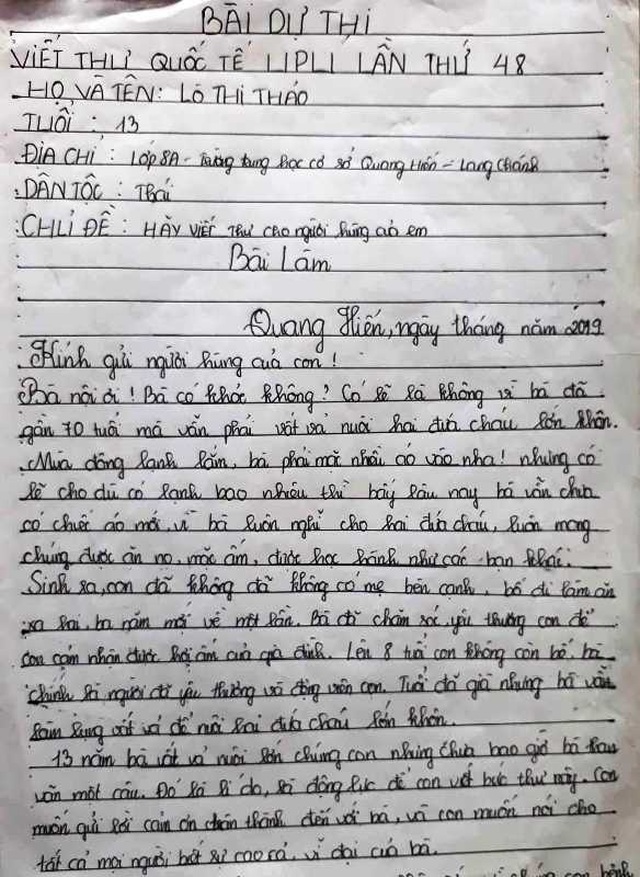 BÀI DỰ THI
VIẾT THƯ QUỐC TẾ UPU LẦN THỨ 48
HỌ VÀ TÊN: LÒ THỊ THẢO
TUỔI : 13
ĐỊA CHỈ : LỚP 8A - Trường trung học cơ sở Quang Hiến - Lang Chánh
DÂN TỘC : Thái
CHỦ ĐỀ : HÃY VIẾT THƯ cho người hùng của em
Bài Làm
Quang Hiến, ngày tháng năm 2019
Kính gửi người hùng của con !
Bà nội ơi ! Bà có khỏe không ? Có lẽ là không vì bà đã
gần 70 tuổi mà vẫn phải vất vả nuôi hai đứa cháu lớn khôn.
Mùa đông lạnh lắm, bà phải mặc nhiều áo vào nha ! nhưng có
lẽ cho dù có lạnh bao nhiêu thì bấy lâu nay bà vẫn chưa
có chiếc áo mới, vì bà luôn nghĩ cho hai đứa cháu, luôn mong
chúng được ăn no, mặc ấm, được học hành như các bạn khác.
Sinh ra, con đã không đã không có mẹ bên cạnh, bố đi làm ăn
xa hai, ba năm mới về một lần. Bà đã chăm sóc, yêu thương con để
con cảm nhận được hơi ấm của gia đình. Lên 8 tuổi con không còn bố, bà
chính là người đã yêu thương và động viên con. Tuổi đã già nhưng bà vẫn
làm lụng vất vả để nuôi hai đứa cháu lớn khôn.
13 năm bà vất vả nuôi lớn chúng con nhưng chưa bao giờ bà than
vãn một câu. Đó là lí do, là động lực để con viết bức thư này. Con
muốn gửi lời cảm ơn chân thành đến với bà, và con muốn nói cho
tất cả mọi người biết sự cao cả, vĩ đại của bà.